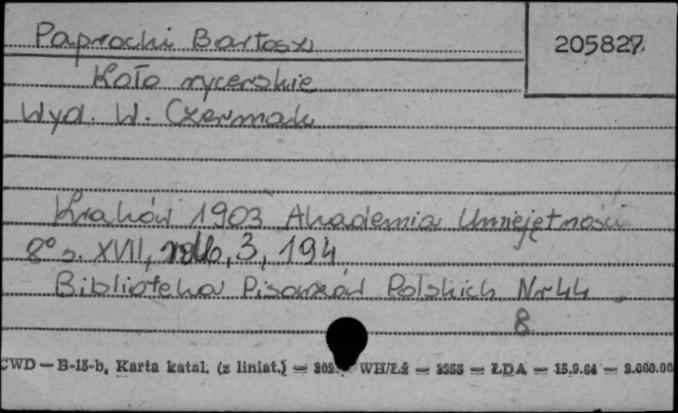 Paprocki Bartosz
205827
Koło rycerskie
Wyd. W. Czermak
Kraków 1903 Akademia Umiejętności
8° s. XVII, 3, 194
Biblioteka Pisarzów Polskich Nr 44
8
CWD — B-15-b, Karta katal. (z liniat.) — WH/Łż — ŁDA — 15.9.64 —